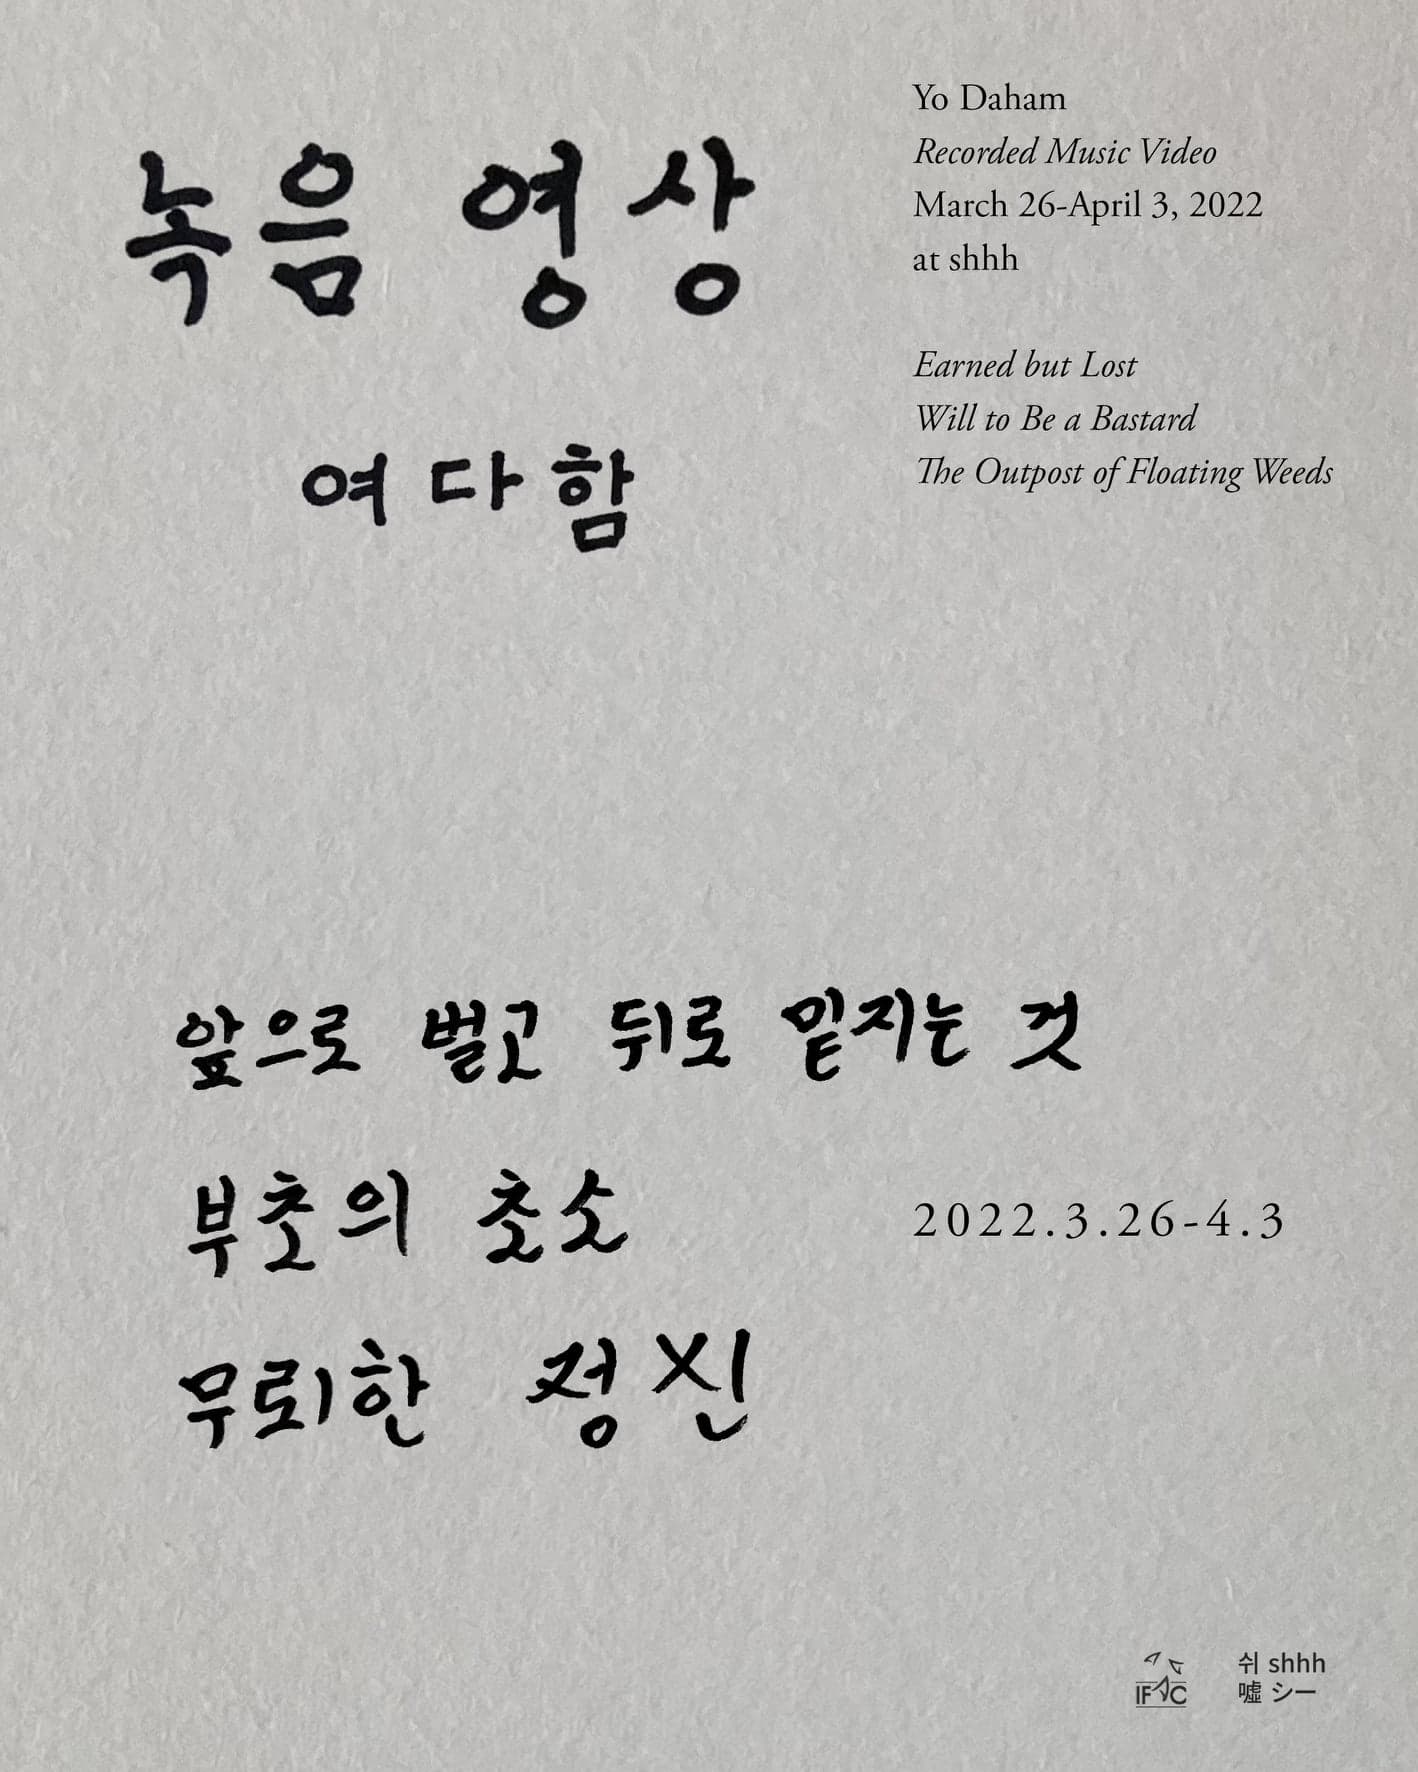 녹음 영상
여다함
Yo Daham
Recorded Music Video
March 26-April 3, 2022
at shhh
Earned but Lost
Will to Be a Bastard
The Outpost of Floating Weeds
앞으로 벌고 뒤로 밑지는 것
부초의 초소
2022.3.26-4.3
무뢰한 정신
IFAC
쉬 shhh
噓 シー